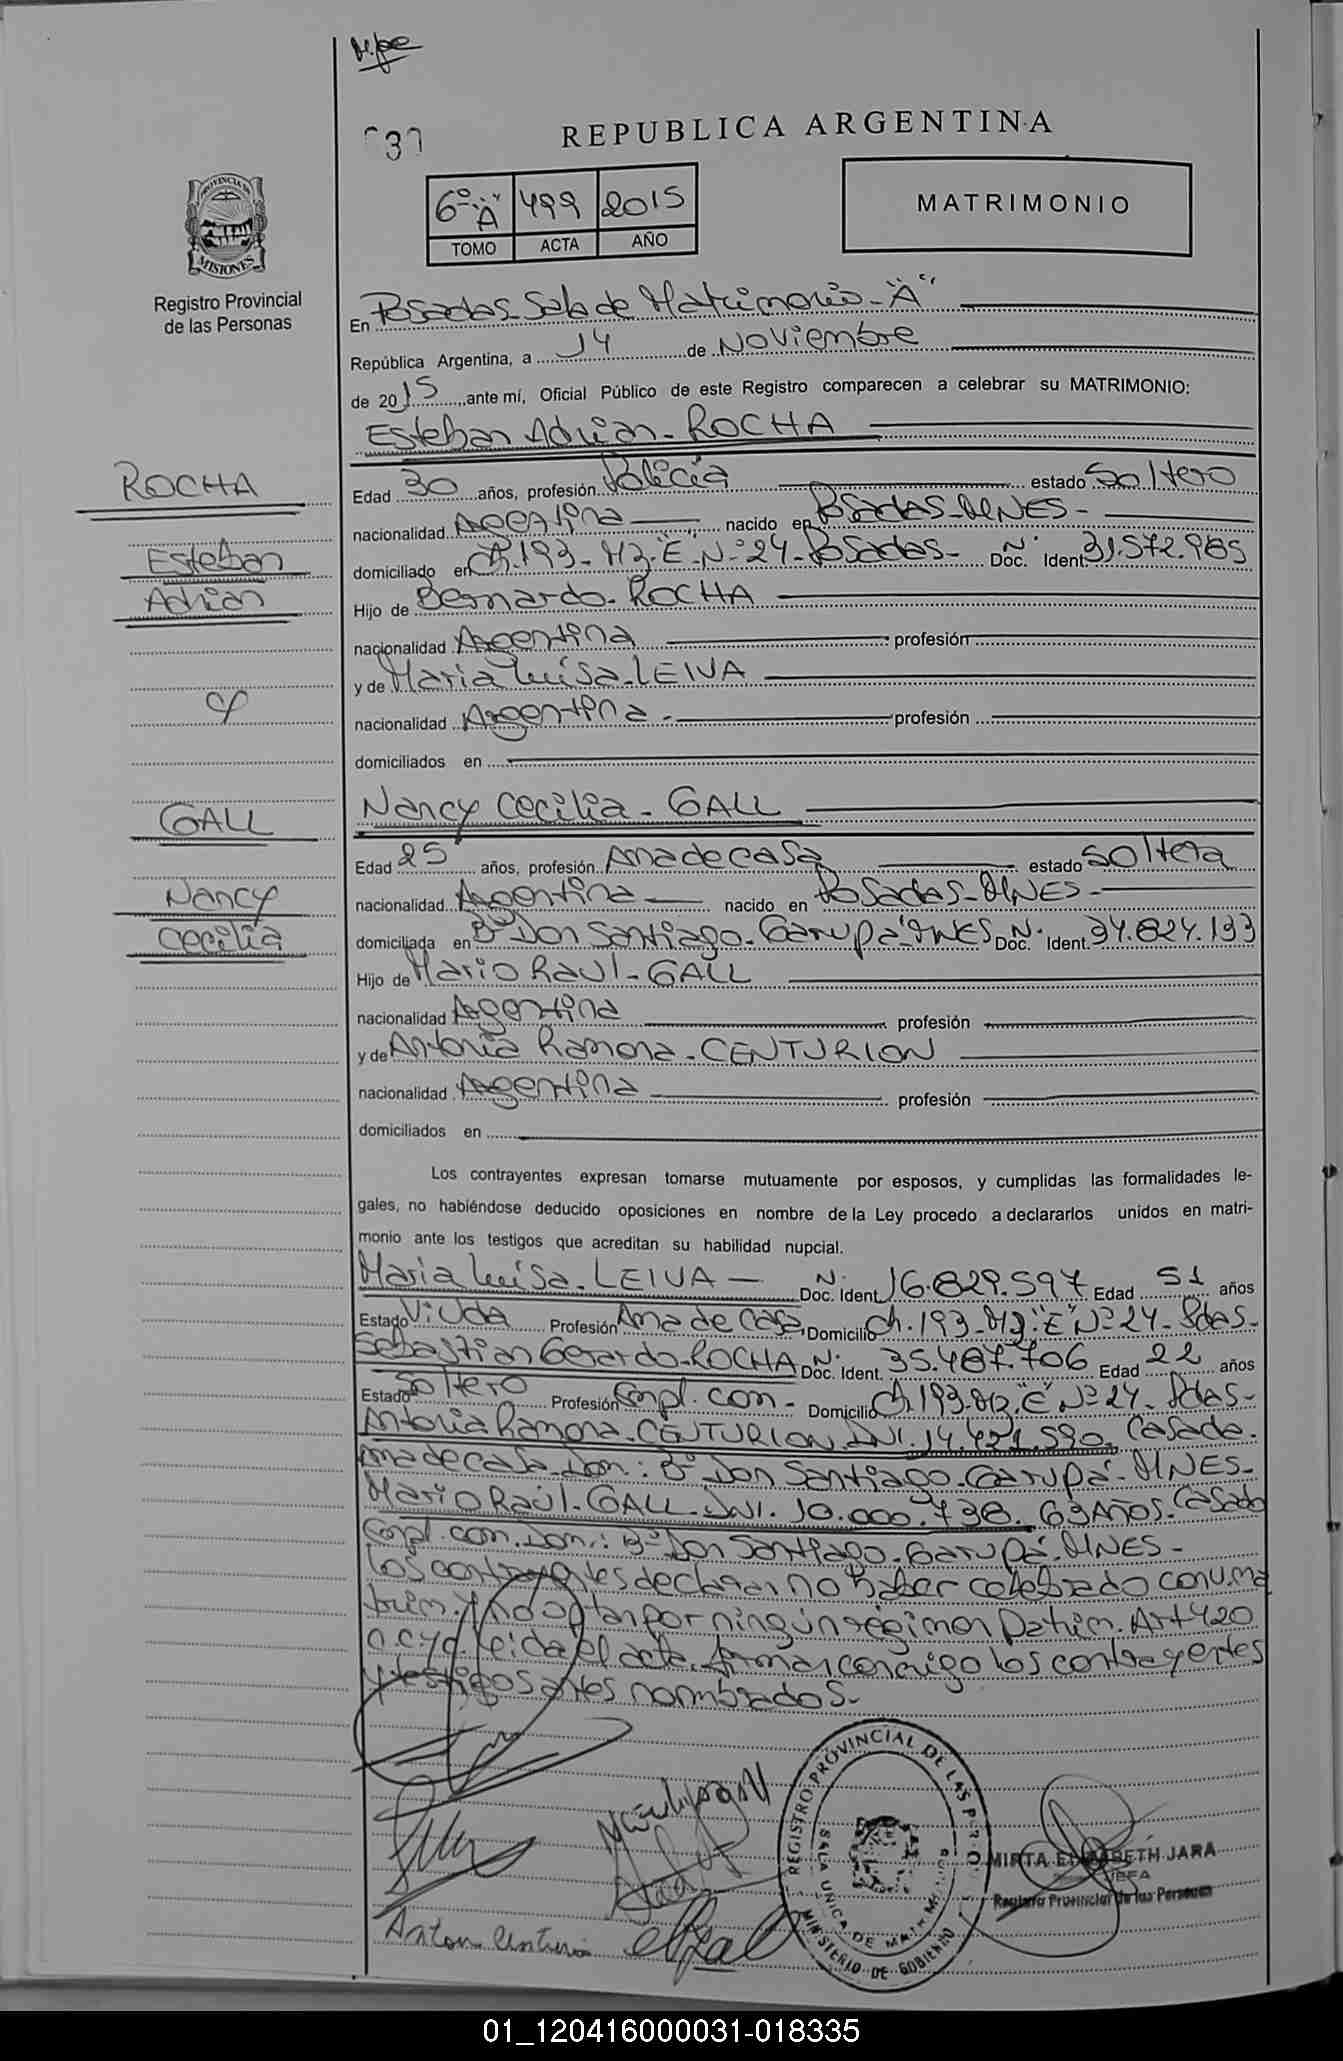 37
REPUBLICA ARGENTINA
6º "A" 499 2015
TOMO ACTA AÑO
MATRIMONIO
PROVINCIA DE
MISIONES
Registro Provincial
de las Personas
En Posadas-Sala de Matrimonio-"A"
República Argentina, a 14 de Noviembre
de 2015, ante mí, Oficial Público de este Registro comparecen a celebrar su MATRIMONIO:
Esteban Adrian-ROCHA
ROCHA
Esteban
Adrian
Edad 30 años, profesión Policía estado Soltero
nacionalidad Argentina nacido en Posadas-MNES-
domiciliado en Ch.193-Mz."E"-Nº24-Posadas- Nº Doc. Ident. 31.572.985
Hijo de Bernardo-ROCHA
nacionalidad Argentina profesión
y de Maria Luisa-LEIVA
nacionalidad Argentina- profesión
domiciliados en
y
GALL
Nancy
Cecilia
Nancy Cecilia-GALL
Edad 25 años, profesión Ama de casa estado Soltera
nacionalidad Argentina nacido en Posadas-MNES-
domiciliada en Bº Don Santiago-Garupá-MNES Nº Doc. Ident. 34.824.133
Hijo de Mario Raul-GALL
nacionalidad Argentina profesión
y de Antonia Ramona-CENTURION
nacionalidad Argentina profesión
domiciliados en
Los contrayentes expresan tomarse mutuamente por esposos, y cumplidas las formalidades le-
gales, no habiéndose deducido oposiciones en nombre de la Ley procedo a declararlos unidos en matri-
monio ante los testigos que acreditan su habilidad nupcial.
Maria Luisa-LEIVA- Nº Doc. Ident. 16.829.597 Edad 51 años
Estado Viuda Profesión Ama de casa, Domicilio Ch.193-Mz."E" Nº24-Pdas-
Sebastian Gerardo-ROCHA Nº Doc. Ident. 35.487.706 Edad 22 años
Estado Soltero Profesión Empl. com- Domicilio Ch.193-Mz."E" Nº24-Pdas-
Antonia Ramona-CENTURION-DNI.14.421.590. Casada.
Ama de casa-Dom.: Bº Don Santiago-Garupá-MNES-
Mario Raúl-GALL-DNI. 10.000.738. 63 AÑOS. Casado
Empl. com. Dom.: Bº Don Santiago-Garupá-MNES-
los contrayentes declaran no haber celebrado conv. ma
trim. y no optan por ningún régimen Patrim. Art 420
C.C y C. leída el acta, firman conmigo los contrayentes
y testigos antes nombrados-
REGISTRO PROVINCIAL DE LAS PERSONAS
SALA UNICA DE MATRIMONIO
MINISTERIO DE GOBIERNO
MIRTA ELIZABETH JARA
JEFA
Registro Provincial de las Personas
01_120416000031-018335